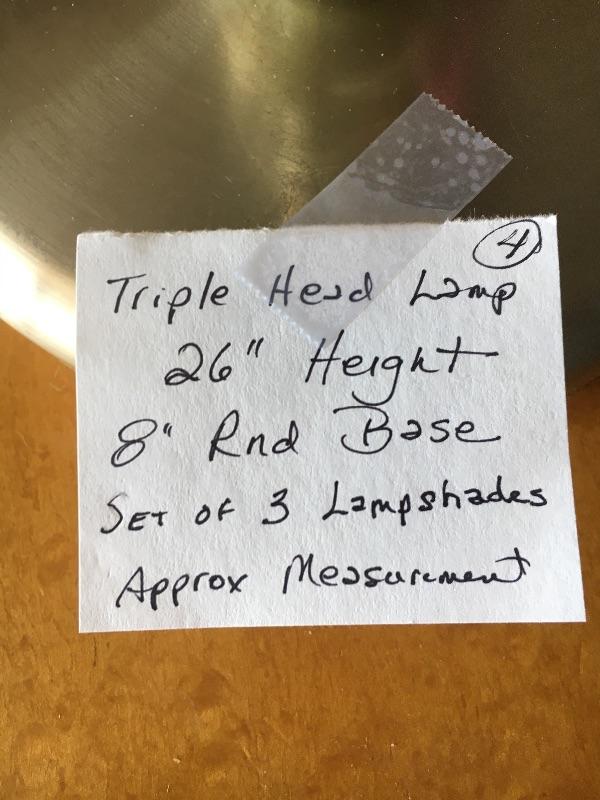 4
Triple Head Lamp
26" Height
8" Rnd Base
SET OF 3 Lampshades
Approx Measurement